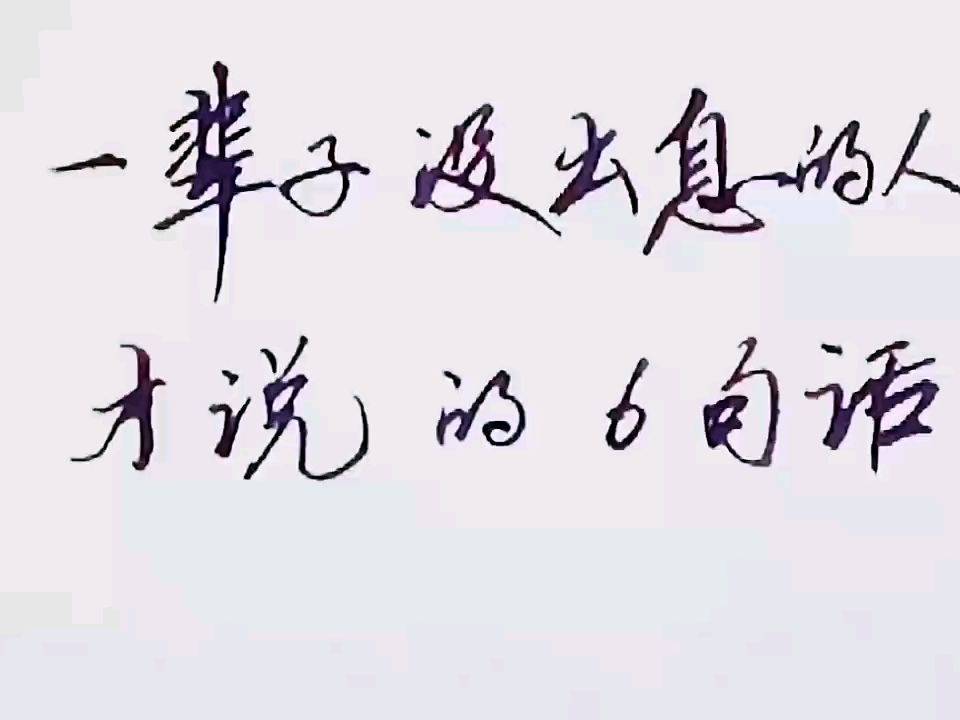 一辈子没出息的人
才说的6句话